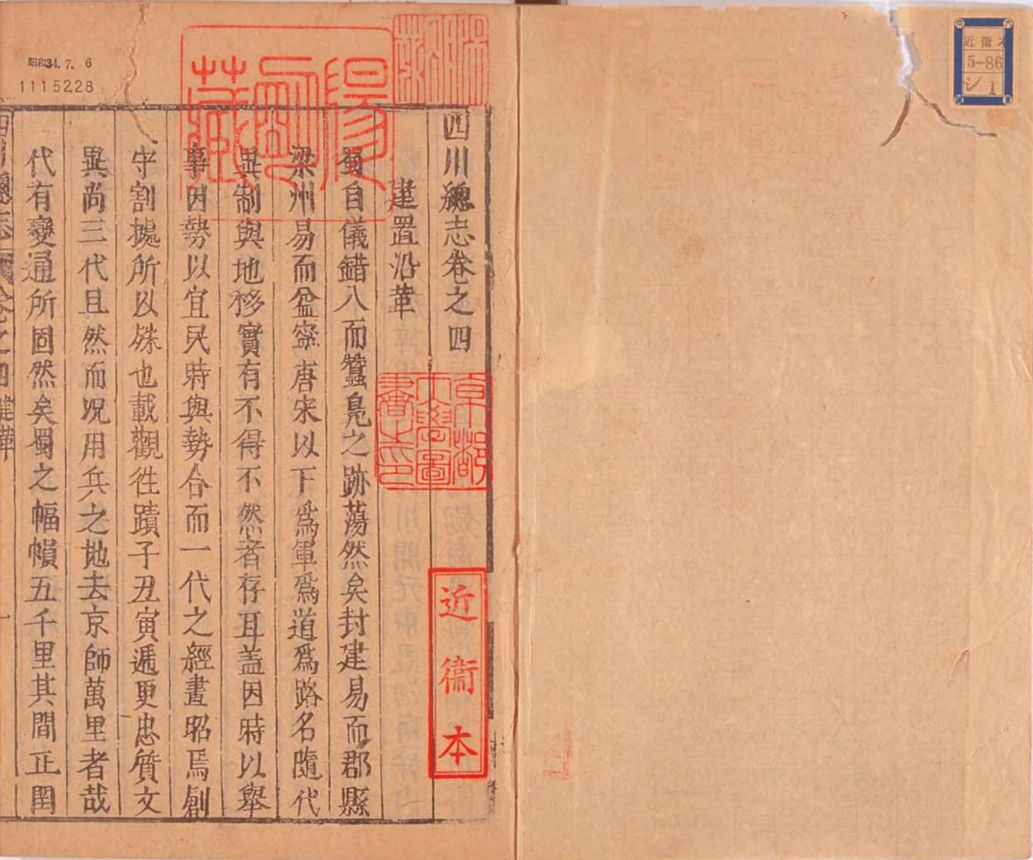 近衞本
5-86
シ 1
四川總志卷之四
建置沿革
蜀自儀錯入而蠶鳧之跡蕩然矣封建易而郡縣
梁州易而益寧唐宋以下爲軍爲道爲路名隨代
異制與地移實有不得不然者存耳盖因時以舉
事因勢以宜民時與勢合而一代之經畫昭焉創
守割據所以殊也載觀徃蹟子丑寅遞更忠質文
異尚三代且然而况用兵之地去京師萬里者哉
代有變通所固然矣蜀之幅幀五千里其間正閏
近衞本
京都大學圖書之印
昭和34.7.6
1115228